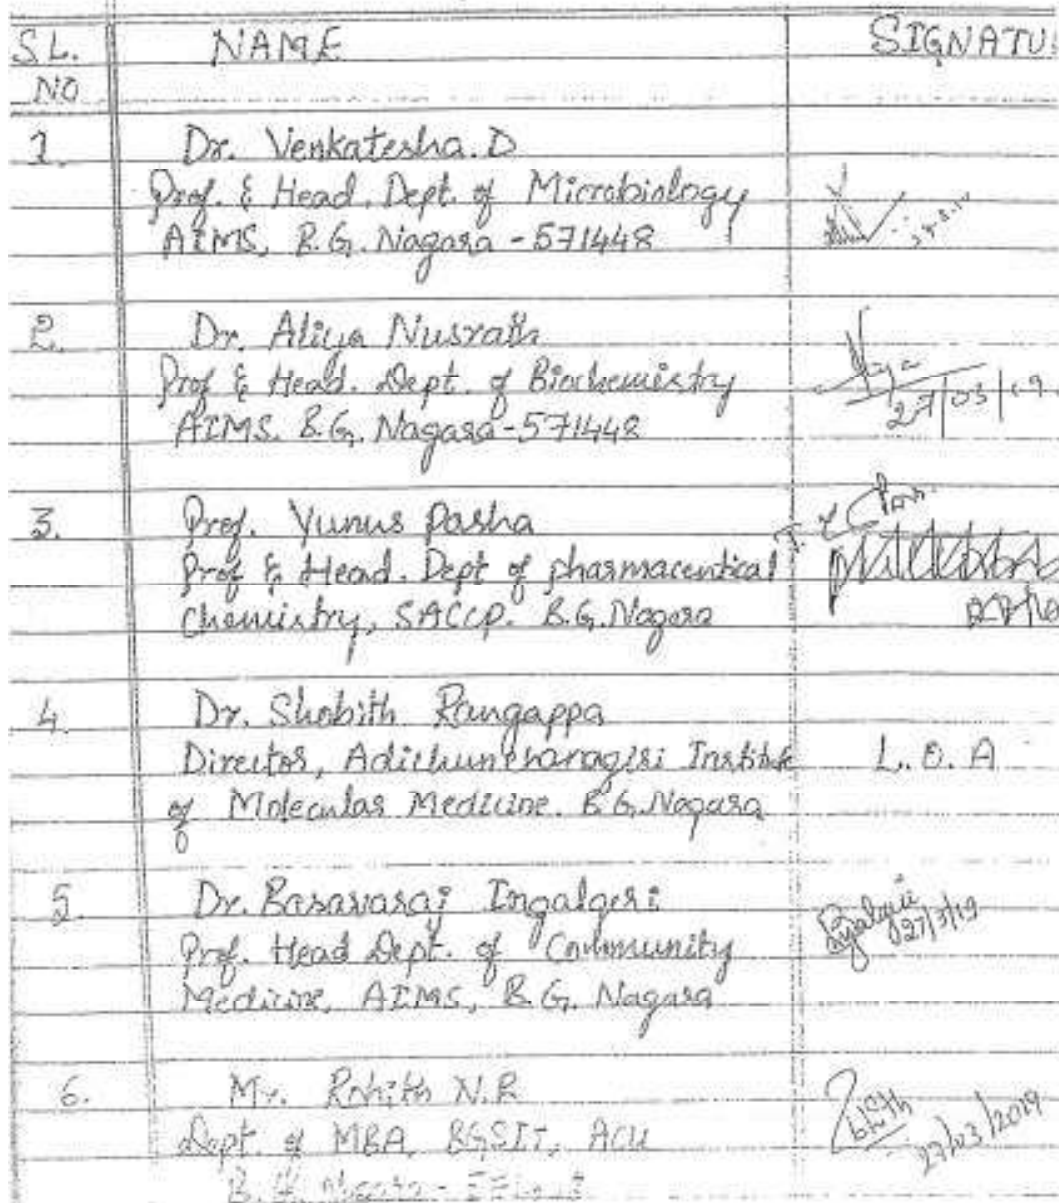 SL. NAME SIGNATU
NO
1. Dr. Venkatesha. D
Prof. & Head. Dept. of Microbiology
AIMS, B.G. Nagara - 571448
2. Dr. Aliya Nusrath
Prof & Head. Dept. of Biochemistry
AIMS. B.G. Nagara - 571448
27/03/19
3. Prof. Yunus Pasha
Prof & Head. Dept of pharmaceutical
Chemistry, SACCP. B.G. Nagara
4. Dr. Shobith Rangappa
Director, Adichunchanagiri Institute L. O. A
of Molecular Medicine. B.G. Nagara
5. Dr. Basavaraj Ingalgeri
27/3/19
Prof. Head Dept. of Community
Medicine, AIMS, B.G. Nagara
6. Mr. Rohith N.R
Dept. of MBA, BGSIT, ACU
27/03/2019